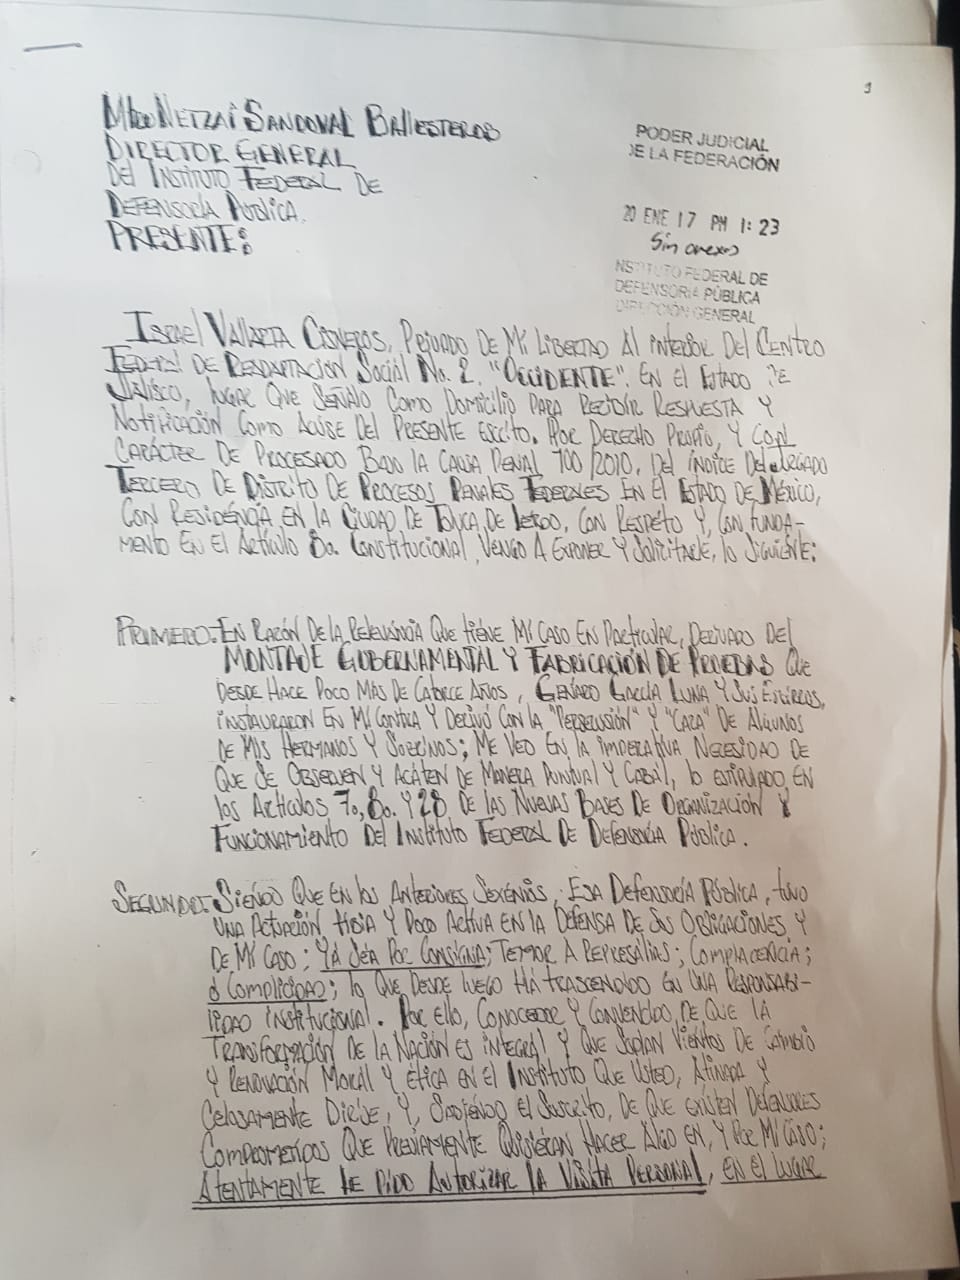 Mtro NETZAÍ SANDOVAL BALLESTEROS
DIRECTOR GENERAL
DEL INSTITUTO FEDERAL DE
DEFENSORÍA PÚBLICA.
PRESENTE:
PODER JUDICIAL
DE LA FEDERACIÓN
20 ENE 17 PM 1:23
Sin anexos
NSTITUTO FEDERAL DE
DEFENSORÍA PÚBLICA
DIRECCIÓN GENERAL
ISRAEL VALLARTA CISNEROS, PRIVADO DE MI LIBERTAD AL INTERIOR DEL CENTRO
FEDERAL DE READAPTACIÓN SOCIAL No. 2, "OCCIDENTE". EN EL ESTADO DE
JALISCO, LUGAR QUE SEÑALO COMO DOMICILIO PARA RECIBIR RESPUESTA Y
NOTIFICACIÓN COMO ACUSE DEL PRESENTE ESCRITO. POR DERECHO PROPIO, Y CON EL
CARÁCTER DE PROCESADO BAJO LA CAUSA PENAL 100/2010, DEL ÍNDICE DEL JUZGADO
TERCERO DE DISTRITO DE PROCESOS PENALES FEDERALES EN EL ESTADO DE MÉXICO,
CON RESIDENCIA EN LA CIUDAD DE TOLUCA DE LERDO, CON RESPÉTO Y, CON FUNDA-
MENTO EN EL ARTÍCULO 8o. CONSTITUCIONAL, VENGO A EXPONER Y SOLICITARLE, LO SIGUIENTE:
PRIMERO.- EN RAZÓN DE LA RELEVANCIA QUE TIENE MI CASO EN PARTICULAR, DERIVADO DEL
MONTAJE GUBERNAMENTAL Y FABRICACIÓN DE PRUEBAS QUE
DESDE HACE POCO MÁS DE CATORCE AÑOS, GENARO GARCÍA LUNA Y SUS ESBIRROS,
INSTAURARON EN MI CONTRA Y DERIVÓ CON LA "PERSECUSIÓN" Y "CAZA" DE ALGUNOS
DE MIS HERMANOS Y SOBRINOS; ME VEO EN LA IMPERATIVA NECESIDAD DE
QUE SE OBSERVEN Y ACATEN DE MANERA PUNTUAL Y CABAL, LO ESTIPULADO EN
LOS ARTÍCULOS 7o, 8o. Y 28 DE LAS NUEVAS BASES DE ORGANIZACIÓN Y
FUNCIONAMIENTO DEL INSTITUTO FEDERAL DE DEFENSORÍA PÚBLICA.
SEGUNDO.- SIENDO QUE EN LOS ANTERIORES SEXENIOS, ESA DEFENSORÍA PÚBLICA, TUVO
UNA ACTUACIÓN TIBIA Y POCO ACTIVA EN LA DEFENSA DE SUS OBLIGACIONES Y
DE MI CASO; YA SEA POR CONSIGNA; TEMOR A REPRESALIAS; COMPLACENCIA;
ó COMPLICIDAD; LO QUE DESDE LUEGO HA TRASCENDIDO EN UNA RESPONSABI-
LIDAD INSTITUCIONAL. POR ELLO, CONOCEDOR Y CONVENCIDO, DE QUE LA
TRANSFORMACIÓN DE LA NACIÓN ES INTEGRAL Y QUE SOPLAN VIENTOS DE CAMBIO
Y RENOVACIÓN MORAL Y ÉTICA EN EL INSTITUTO QUE USTED, ATINADA Y
CELOSAMENTE DIRIJE, Y, SABIENDO EL SUSCRITO, DE QUE EXISTEN DEFENSORES
COMPROMETIDOS QUE PREVIAMENTE QUISIERAN HACER ALGO EN, Y POR MI CASO;
ATENTAMENTE LE PIDO AUTORIZAR LA VISITA PERSONAL, EN EL LUGAR